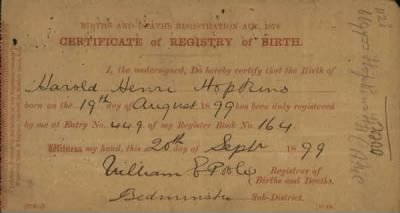 BIRTHS AND DEATHS REGISTRATION ACT, 1874
CERTIFICATE of REGISTRY of BIRTH.
I, the undersigned, Do hereby certify that the Birth of
Harold Henri Hopkins
born on the 19th day of August 1899 has been duly registered
by me at Entry No. 449 of my Register Book No. 164.
Witness my hand, this 20th day of Septr 1899
William E Poole Registrar of
Births and Deaths.
Bedminster Sub-District.